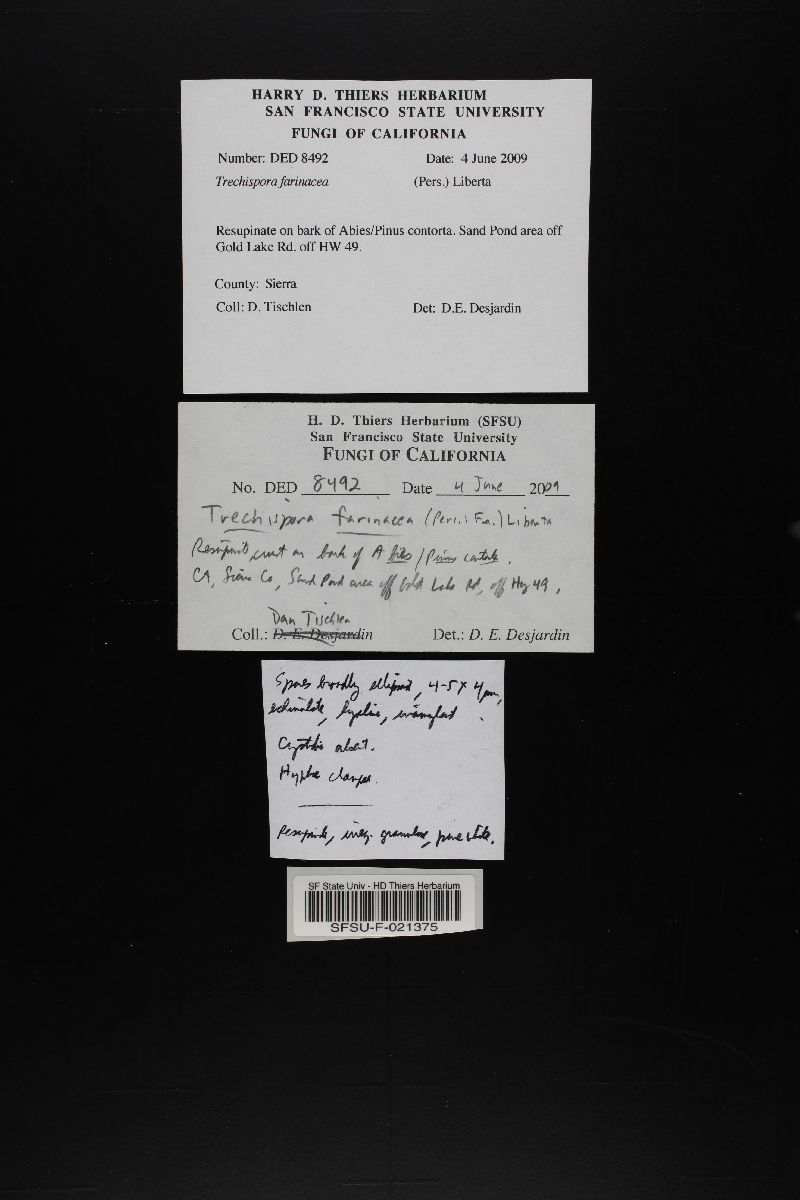 HARRY D. THIERS HERBARIUM
SAN FRANCISCO STATE UNIVERSITY
FUNGI OF CALIFORNIA
Number: DED 8492 Date: 4 June 2009
Trechispora farinacea (Pers.) Liberta
Resupinate on bark of Abies/Pinus contorta. Sand Pond area off
Gold Lake Rd. off HW 49.
County: Sierra
Coll: D. Tischlen Det: D.E. Desjardin
H. D. Thiers Herbarium (SFSU)
San Francisco State University
FUNGI OF CALIFORNIA
No. DED 8492 Date 4 June 2009
Trechispora farinacea (Pers.: Fr.) Liberta
Resupinate crust on bark of Abies/Pinus contorta.
CA, Sierra Co, Sand Pond area off Gold Lake Rd, off Hwy 49,
Dan Tischlen
Coll.: D. E. Desjardin Det.: D. E. Desjardin
Spores broadly ellipsoid, 4-5 x 4 μm,
echinulate, hyaline, inamyloid.
Cystidia absent.
Hyphae clamped.
Resupinate, irreg. granulose, pure white.
SF State Univ - HD Thiers Herbarium
SFSU-F-021375